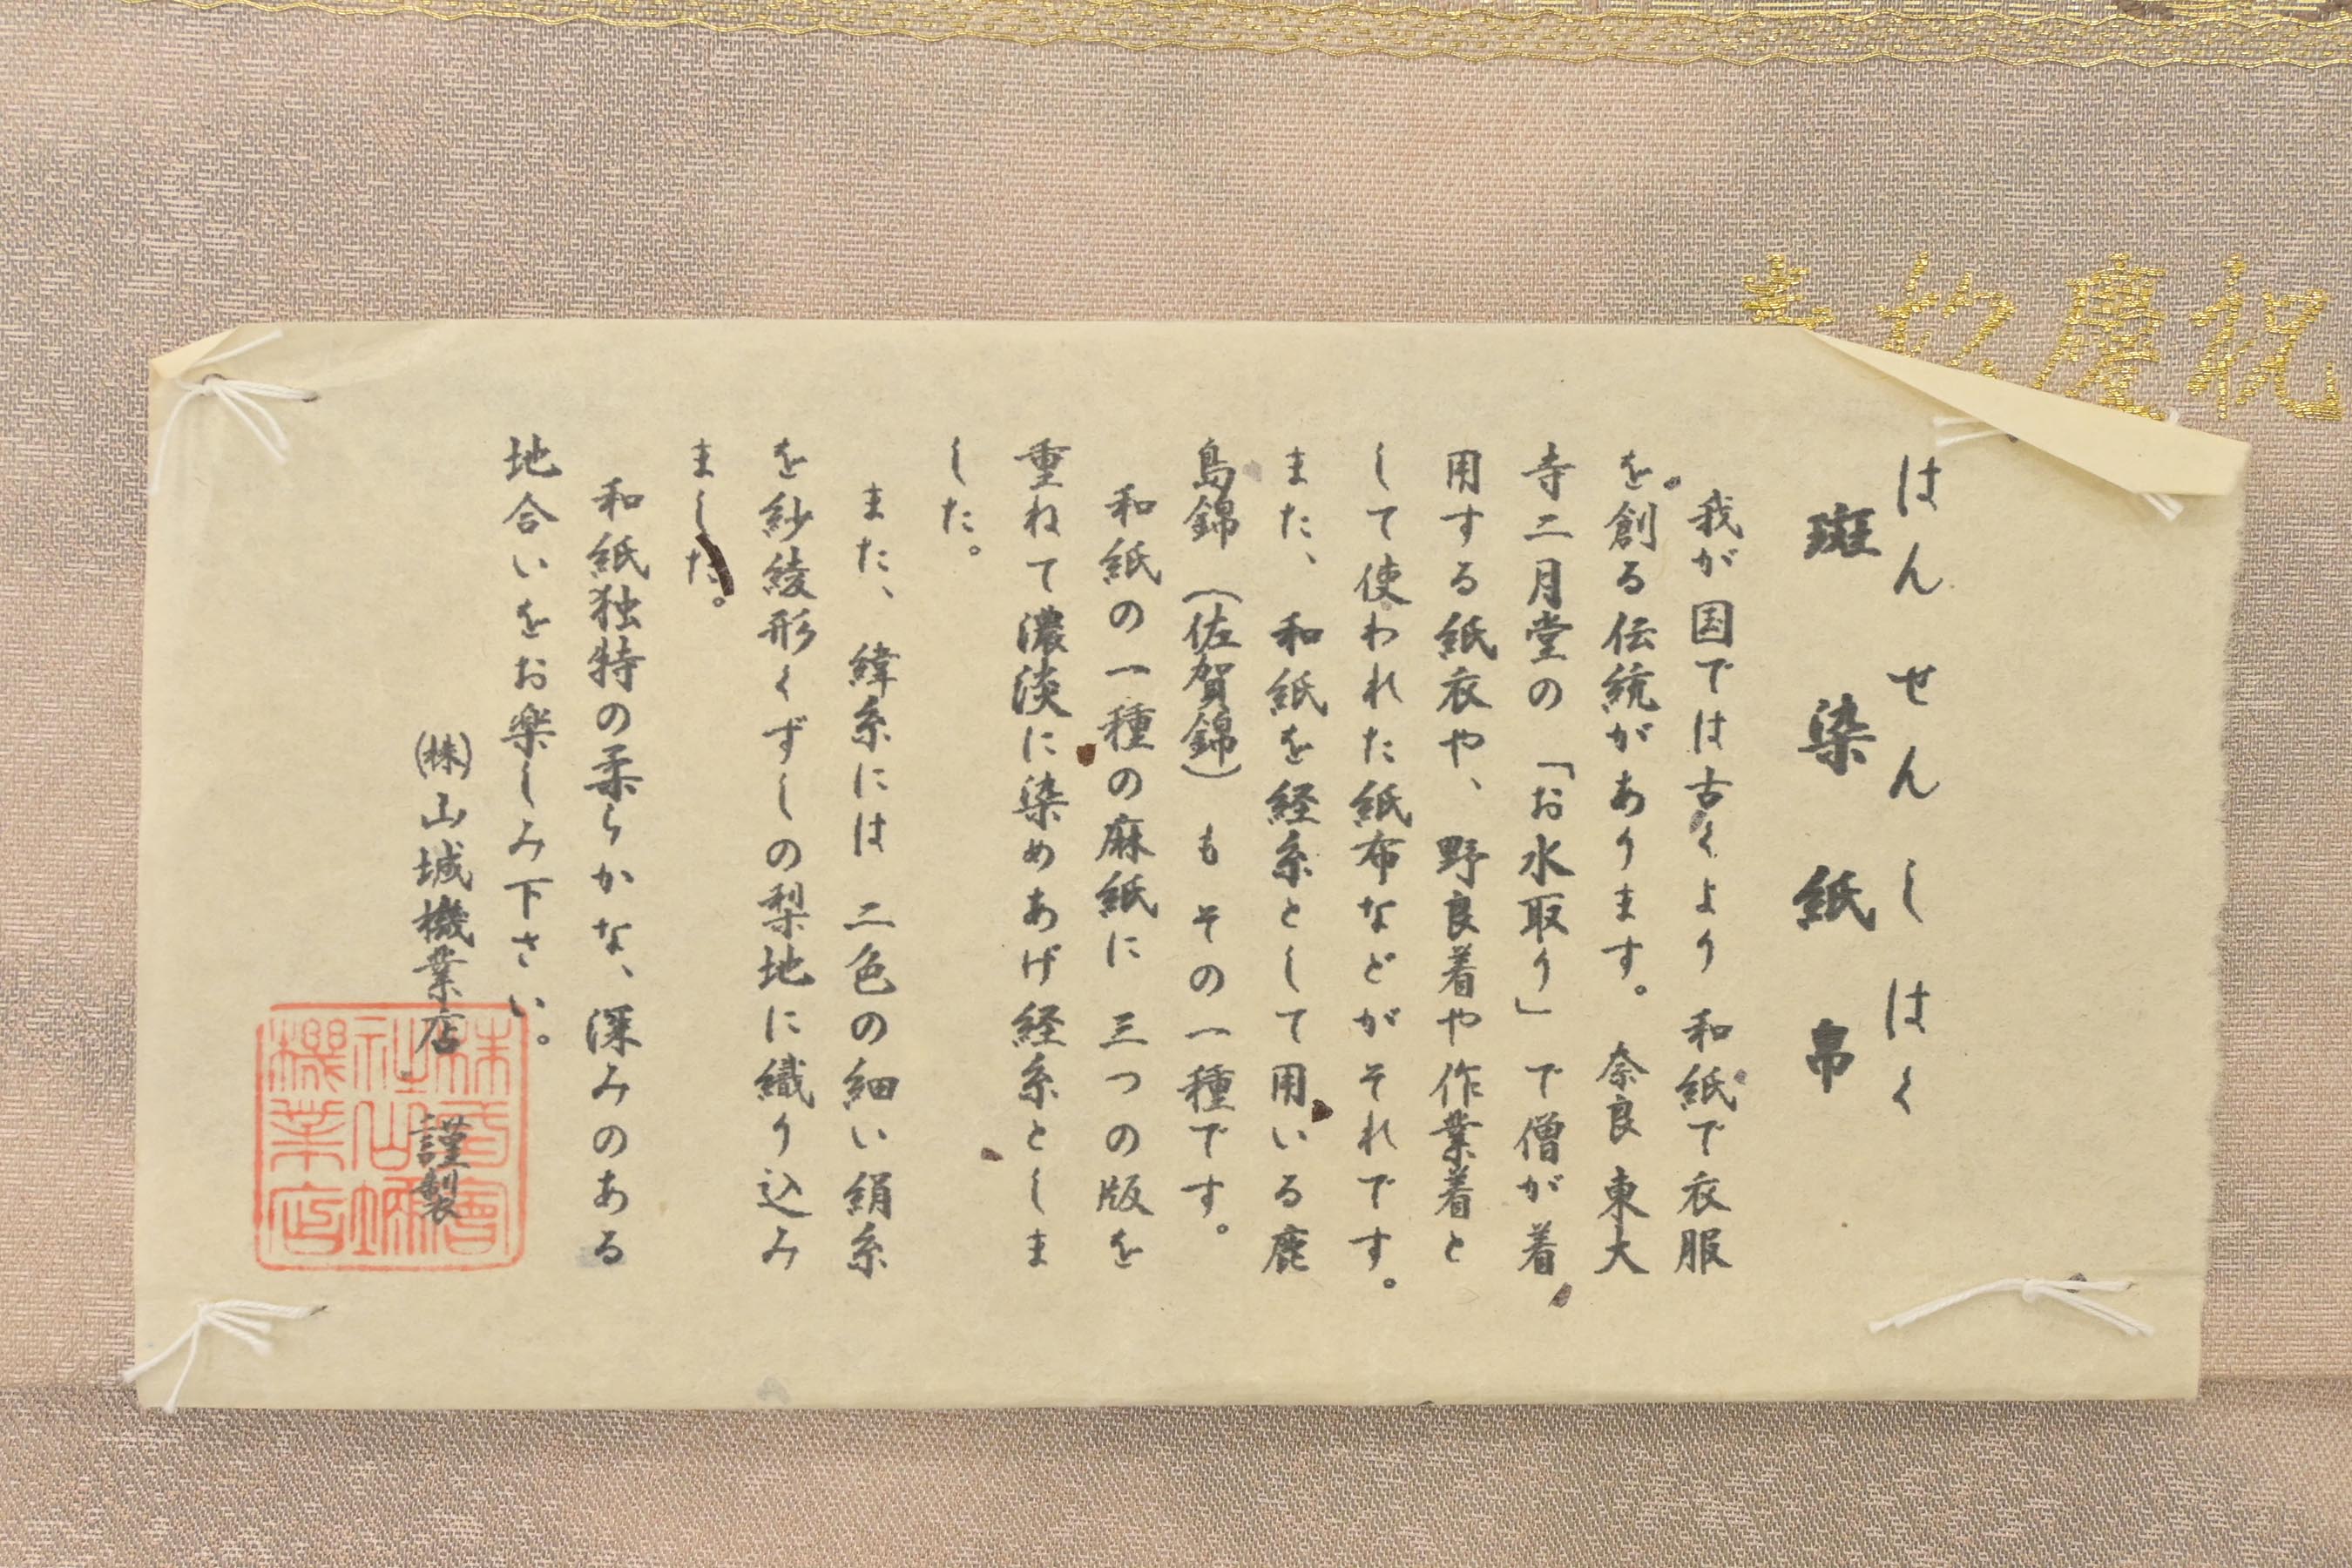 祝慶
はんせんしはく
斑染紙帛
我が国では古くより 和紙で衣服
を創る伝統があります。 奈良 東大
寺二月堂の 「お水取り」で僧が着
用する紙衣や、野良着や作業着と
して使われた紙布などがそれです。
また、 和紙を経糸として用いる鹿
島錦 (佐賀錦) もその一種です。
和紙の一種の麻紙に 三つの版を
重ねて濃淡に染めあげ経糸としま
した。
また、 緯糸には 二色の細い絹糸
を紗綾形くずしの梨地に織り込み
ました。
和紙独特の柔らかな、深みのある
地合いをお楽しみ下さい。
㈱山城機業店 謹製
株式會社山城機業店